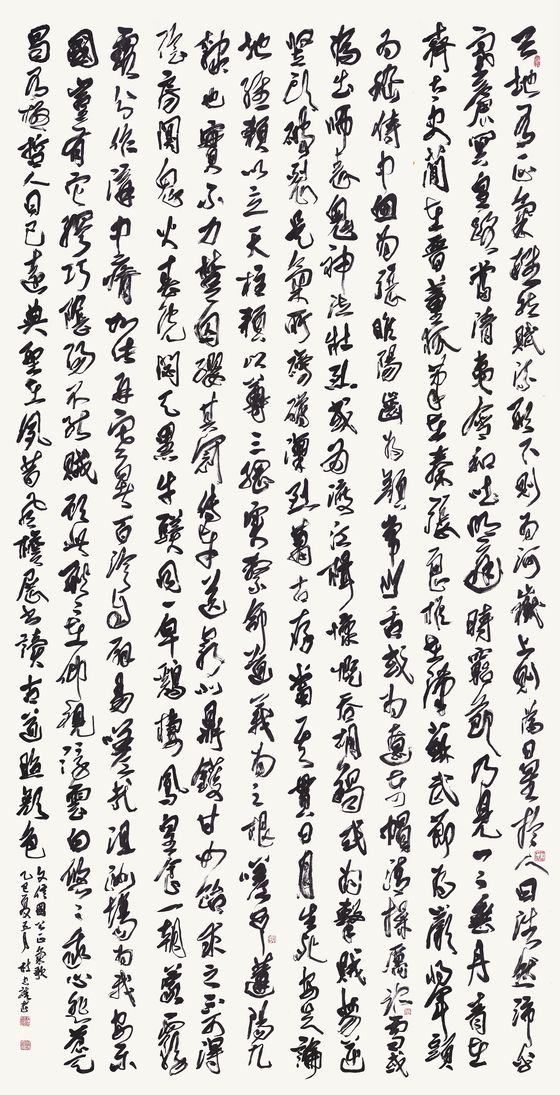 天地有正氣雜然賦流形下則為河嶽上則為日星於人曰浩然沛乎
塞蒼冥皇路當清夷含和吐明庭時窮節乃見一一垂丹青在
齊太史簡在晉董狐筆在秦張良椎在漢蘇武節為嚴將軍頭
為嵇侍中血為張睢陽齒為顏常山舌或為遼東帽清操厲冰雪或
為出師表鬼神泣壯烈或為渡江楫慷慨吞胡羯或為擊賊笏逆
豎頭破裂是氣所磅礴凜烈萬古存當其貫日月生死安足論
地維賴以立天柱賴以尊三綱實繫命道義為之根嗟予遘陽九
隸也實不力楚囚纓其冠傳車送窮北鼎鑊甘如飴求之不可得
陰房闃鬼火春院閟天黑牛驥同一皁鷄棲鳳皇食一朝蒙霧
露分作溝中瘠如此再寒暑百沴自辟易嗟哉沮洳場為我安樂
國豈有它繆巧陰陽不能賊顧此耿耿在仰視浮雲白悠悠我心悲蒼天
曷有極哲人日已遠典型在夙昔風檐展書讀古道照顏色
文信國公正氣歌
乙巳夏五月